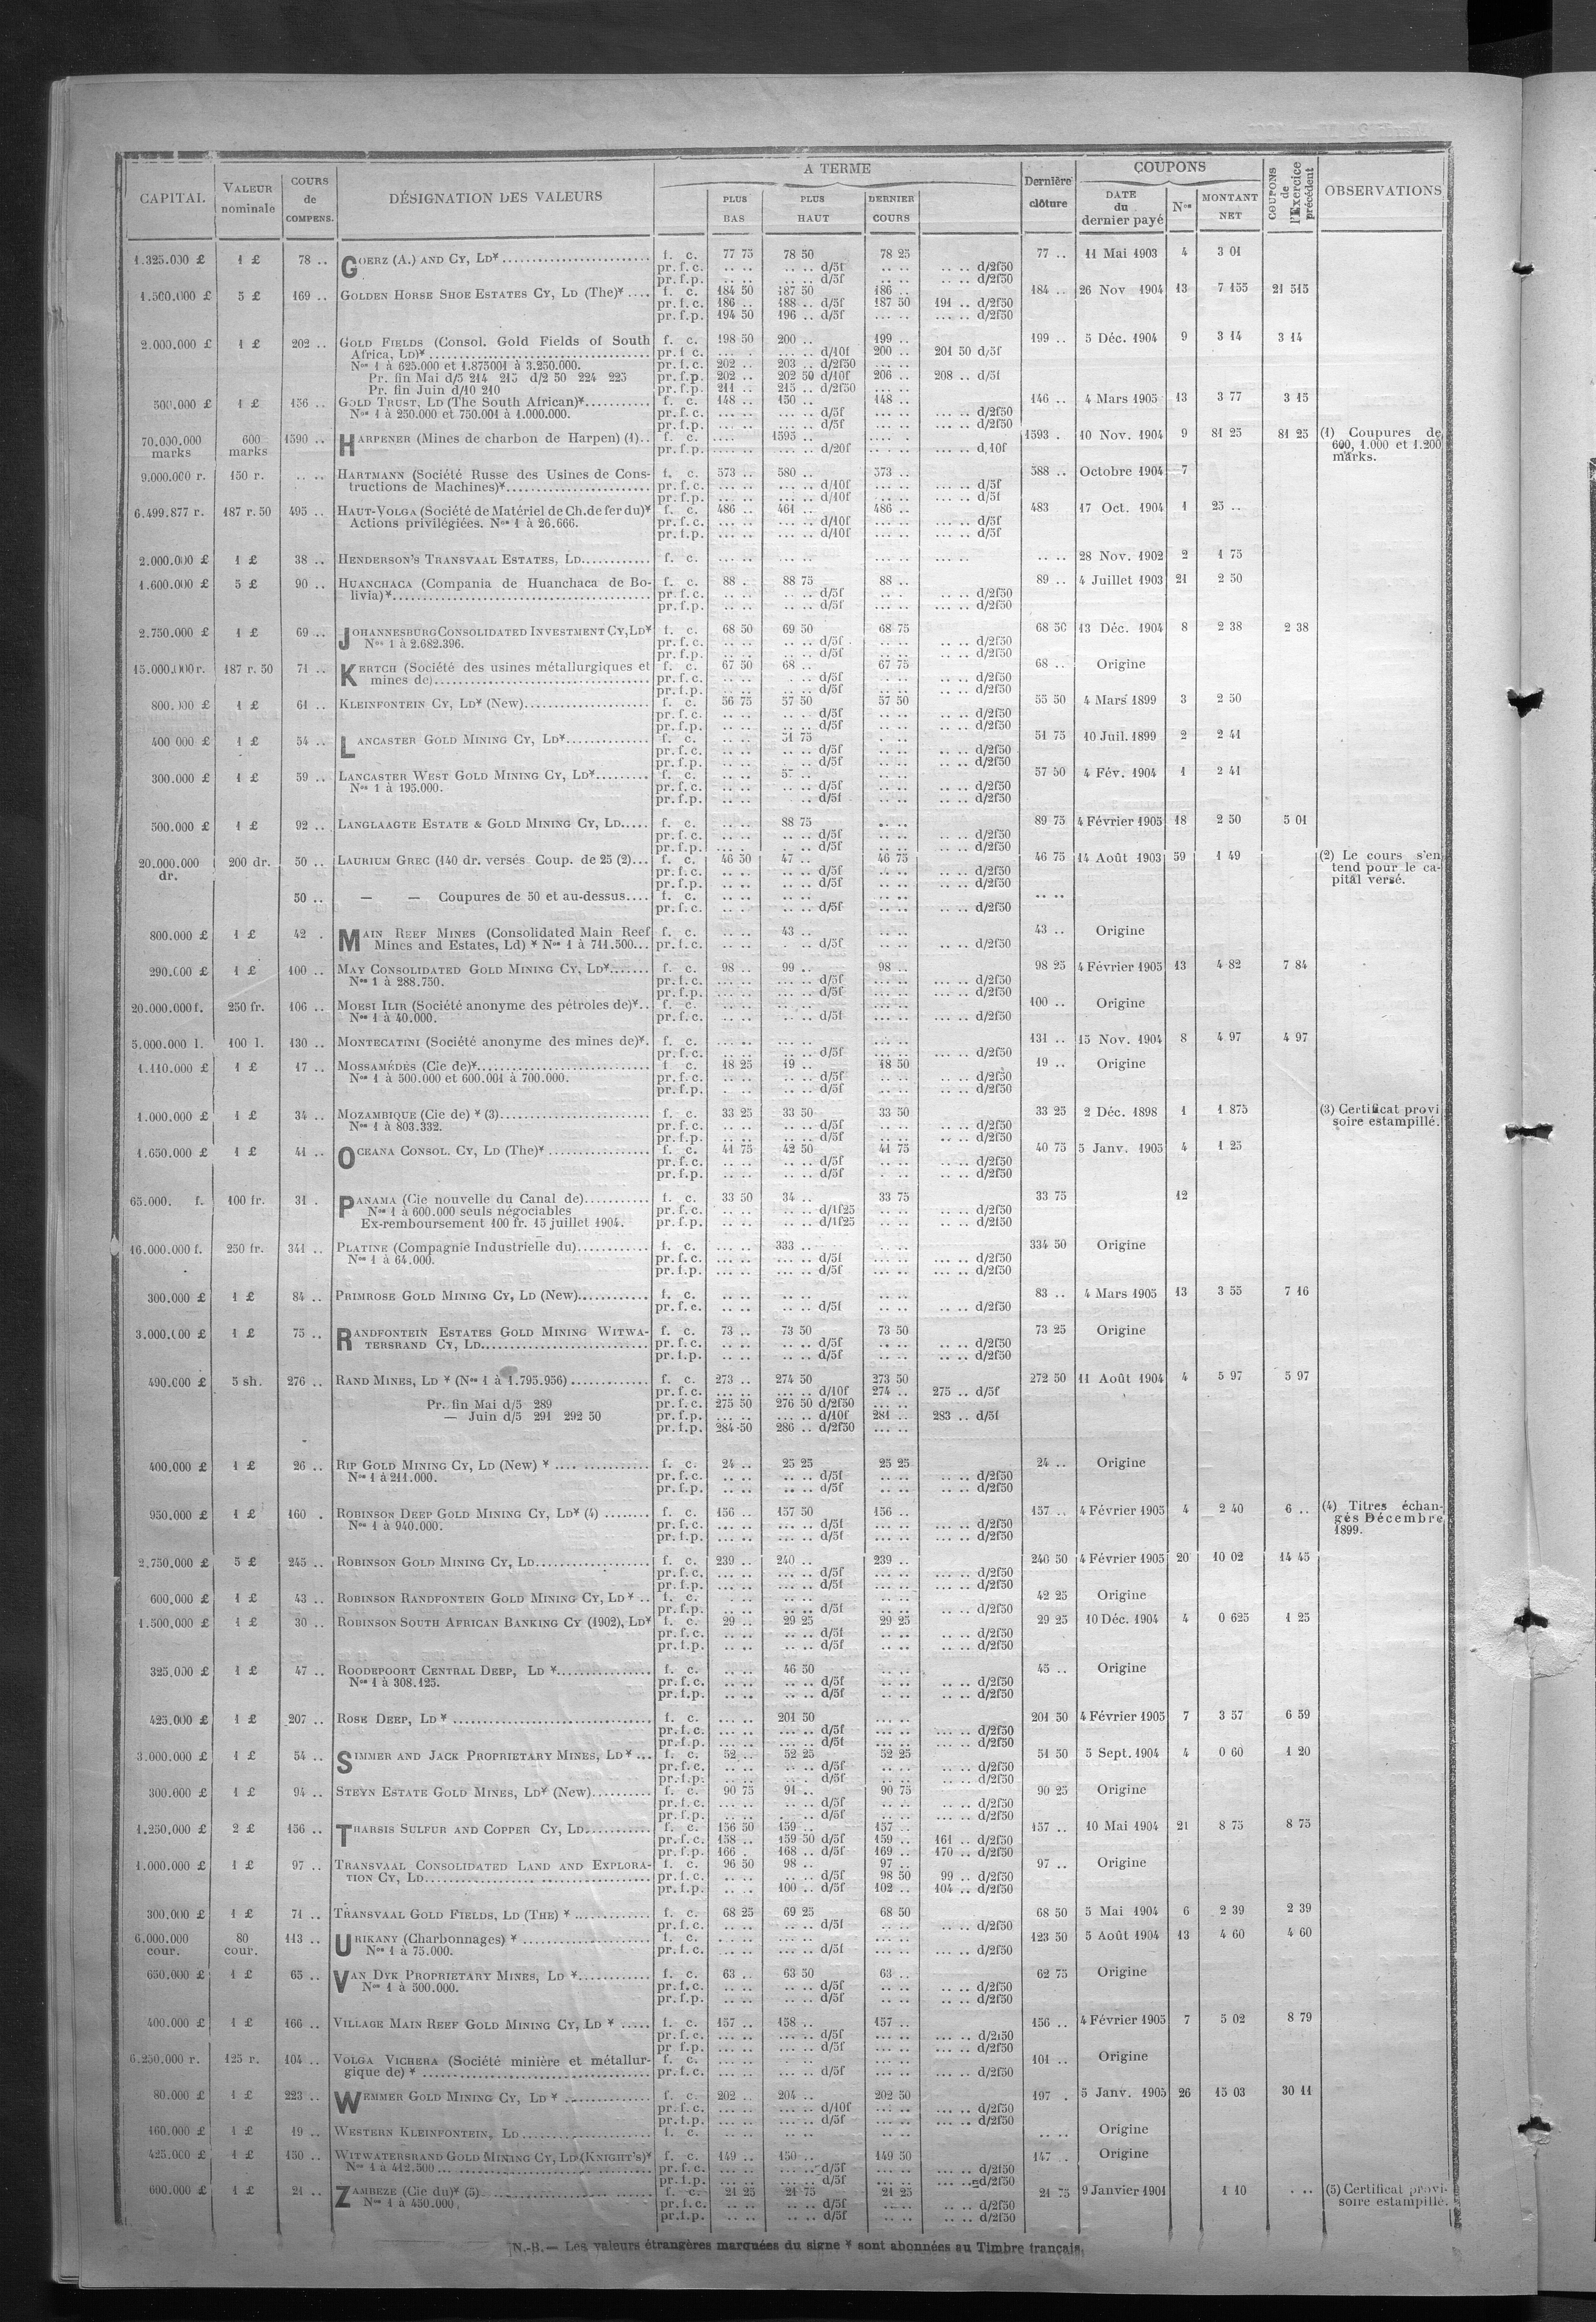 CAPITAL
VALEUR nominale
COURS de COMPENS.
DÉSIGNATION DES VALEURS
A TERME
PLUS BAS
PLUS HAUT
DERNIER COURS
Dernière clôture
COUPONS
DATE du dernier payé
Nos
MONTANT NET
COUPONS de l'Exercice précédent
OBSERVATIONS
1.325.000 £ 1 £ 78 .. GOERZ (A.) AND CY, LD* f. c. 77 75 78 50 78 25 77 .. 11 Mai 1903 4 3 01
pr. f. c. .. .. .. .. d/5f .. .. .. .. d/2f50
pr. f. p. .. .. .. .. d/5f .. .. .. .. d/2f50
1.500.000 £ 5 £ 169 .. GOLDEN HORSE SHOE ESTATES CY, LD (The)* f. c. 184 50 187 50 186 .. 184 .. 26 Nov 1904 13 7 155 21 515
pr. f. c. 186 .. 188 .. d/5f 187 50 191 .. d/2f50
pr. f. p. 194 50 196 .. d/5f ... .. ... .. d/2f50
2.000.000 £ 1 £ 202 .. GOLD FIELDS (Consol. Gold Fields of South f. c. 198 50 200 .. 199 .. 199 .. 5 Déc. 1904 9 3 14 3 14
Africa, LD)* pr. f. c. ... .. d/10f 200 .. 201 50 d/5f
Nos 1 à 625.000 et 1.875001 à 3.250.000. pr. f. c. 202 .. 203 .. d/2f50 ... ..
Pr. fin Mai d/5 214 215 d/2 50 224 225 pr. f. p. 202 .. 202 50 d/10f 206 .. 208 .. d/5f
Pr. fin Juin d/10 210 pr. f. p. 211 .. 215 .. d/2f50 ... ..
500.000 £ 1 £ 156 .. GOLD TRUST, LD (The South African)* f. c. 148 .. 150 .. 148 .. 146 .. 4 Mars 1905 13 3 77 3 15
Nos 1 à 250.000 et 750.001 à 1.000.000. pr. f. c. ... .. ... .. d/5f ... .. ... .. d/2f50
pr. f. p. ... .. ... .. d/5f ... .. ... .. d/2f50
70.000.000 marks 600 marks 1590 .. HARPENER (Mines de charbon de Harpen) (1).. f. c. 1595 .. 1593 . 10 Nov. 1904 9 81 25 81 25 (1) Coupures de
pr. f. p. d/20f d/10f 600, 1.000 et 1.200
marks.
9.000.000 r. 150 r. .. .. HARTMANN (Société Russe des Usines de Cons- f. c. 573 .. 580 .. 573 .. 588 .. Octobre 1904 7
tructions de Machines)* pr. f. c. ... .. ... .. d/10f ... .. ... .. d/5f
pr. f. p. ... .. ... .. d/10f ... .. ... .. d/5f
6.499.877 r. 187 r. 50 495 .. HAUT-VOLGA (Société de Matériel de Ch. de fer du)* f. c. 486 .. 461 .. 486 .. 483 17 Oct. 1904 1 25 ..
Actions privilégiées. Nos 1 à 26.666. pr. f. c. ... .. ... .. d/10f ... .. ... .. d/5f
pr. f. p. ... .. ... .. d/10f ... .. ... .. d/5f
2.000.000 £ 1 £ 38 .. HENDERSON'S TRANSVAAL ESTATES, LD f. c. .. .. .. .. .. .. .. .. 28 Nov. 1902 2 1 75
1.600.000 £ 5 £ 90 .. HUANCHACA (Compania de Huanchaca de Bo- f. c. 88 . 88 75 88 .. 89 .. 4 Juillet 1903 21 2 50
livia)* pr. f. c. .. .. .. .. d/5f .. . ... .. d/2f50
pr. f. p. .. .. .. .. d/5f ... .. ... .. d/2f50
2.750.000 £ 1 £ 69 .. JOHANNESBURG CONSOLIDATED INVESTMENT CY, LD* f. c. 68 50 69 50 68 75 68 50 13 Déc. 1904 8 2 38 2 38
Nos 1 à 2.682.396. pr. f. c. .. .. .. .. d/5f .. .. .. .. d/2f50
pr. f. p. .. .. .. .. d/5f .. .. .. .. d/2f50
15.000.000 r. 187 r. 50 71 .. KERTCH (Société des usines métallurgiques et f. c. 67 50 68 .. 67 75 68 .. Origine
mines de) pr. f. c. .. .. .. .. d/5f .. .. .. .. d/2f50
pr. f. p. .. .. .. .. d/5f .. .. .. .. d/2f50
800.000 £ 1 £ 61 .. KLEINFONTEIN CY, LD* (New) f. c. 56 75 57 50 57 50 55 50 4 Mars 1899 3 2 50
pr. f. c. .. .. .. .. d/5f .. .. .. .. d/2f50
pr. f. p. .. .. .. .. d/5f .. .. .. .. d/2f50
400 000 £ 1 £ 54 .. LANCASTER GOLD MINING CY, LD* f. c. .. .. 51 75 51 75 10 Juil. 1899 2 2 41
pr. f. c. .. .. .. .. d/5f .. .. .. .. d/2f50
pr. f. p. .. .. .. .. d/5f .. .. .. .. d/2f50
300.000 £ 1 £ 59 .. LANCASTER WEST GOLD MINING CY, LD* f. c. .. .. .. .. 57 50 4 Fév. 1904 1 2 41
Nos 1 à 195.000. pr. f. c. .. .. .. .. d/5f .. .. .. .. d/2f50
pr. f. p. .. .. .. .. d/5f .. .. .. .. d/2f50
500.000 £ 1 £ 92 .. LANGLAAGTE ESTATE & GOLD MINING CY, LD f. c. .. .. 88 75 .. .. 89 75 4 Février 1905 18 2 50 5 01
pr. f. c. .. .. .. .. d/5f .. .. .. .. d/2f50
pr. f. p. .. .. .. .. d/5f .. .. .. .. d/2f50
20.000.000 dr. 200 dr. 50 .. LAURIUM GREC (140 dr. versés Coup. de 25 (2) f. c. 46 50 47 .. 46 75 46 75 14 Août 1903 59 1 49 (2) Le cours s'en
pr. f. c. .. .. .. .. d/5f .. .. .. .. d/2f50 tend pour le ca-
pr. f. p. .. .. .. .. d/5f .. .. .. .. d/2f50 pital versé.
50 .. — — Coupures de 50 et au-dessus f. c. .. .. .. .. .. .. .. ..
pr. f. c. .. .. .. .. d/5f .. .. .. .. d/2f50
800.000 £ 1 £ 42 . MAIN REEF MINES (Consolidated Main Reef f. c. .. .. 43 .. .. .. 43 .. Origine
Mines and Estates, Ld) * Nos 1 à 711.500 pr. f. c. .. .. . .. d/5f .. .. .. .. d/2f50
290.000 £ 1 £ 100 .. MAY CONSOLIDATED GOLD MINING CY, LD* f. c. 98 .. 99 .. 98 .. 98 25 4 Février 1905 13 4 82 7 84
Nos 1 à 288.750. pr. f. c. ... .. ... .. d/5f ... .. ... .. d/2f50
pr. f. p. ... .. ... .. d/5f ... .. ... .. d/2f50
20.000.000 f. 250 fr. 106 .. MOESI ILIR (Société anonyme des pétroles de)* f. c. .. .. .. .. .. .. 100 .. Origine
Nos 1 à 40.000. pr. f. c. .. .. .. .. d/5f .. .. ... .. d/2f50
5.000.000 l. 100 l. 130 .. MONTECATINI (Société anonyme des mines de)*. f. c. ... .. ... .. ... .. 131 .. 15 Nov. 1904 8 4 97 4 97
pr. f. c. .. .. d/5f .. .. ... .. d/2f50
1.110.000 £ 1 £ 17 .. MOSSAMÉDÈS (Cie de)* f. c. 18 25 19 .. 18 50 19 .. Origine
Nos 1 à 500.000 et 600.001 à 700.000. pr. f. c. .. .. .. .. d/5f .. .. .. .. d/2f50
pr. f. p. .. .. .. .. d/5f .. .. .. .. d/2f50
1.000.000 £ 1 £ 34 .. MOZAMBIQUE (Cie de) * (3) f. c. 33 25 33 50 33 50 33 25 2 Déc. 1898 1 1 875 (3) Certificat provi
Nos 1 à 803.332. pr. f. c. .. .. .. .. d/5f .. .. .. .. d/2f50 soire estampillé.
pr. f. p. .. .. .. .. d/5f .. .. .. .. d/2f50
1.650.000 £ 1 £ 41 .. OCEANA CONSOL. CY, LD (The)* f. c. 41 75 42 50 41 75 40 75 5 Janv. 1905 4 1 25
pr. f. c. .. .. .. .. d/5f .. .. .. .. d/2f50
pr. f. p. .. .. .. .. d/5f .. .. .. .. d/2f50
65.000. f. 100 fr. 31 . PANAMA (Cie nouvelle du Canal de) f. c. 33 50 34 .. 33 75 33 75 12
Nos 1 à 600.000 seuls négociables pr. f. c. .. .. .. .. d/1f25 .. .. .. .. d/2f50
Ex-remboursement 100 fr. 15 juillet 1904. pr. f. p. .. .. .. .. d/1f25 .. .. .. .. d/2f50
16.000.000 f. 250 fr. 341 .. PLATINE (Compagnie Industrielle du) f. c. ... .. 333 .. .. .. 334 50 Origine
Nos 1 à 64.000. pr. f. c. ... .. ... .. d/5f ... .. ... .. d/2f50
pr. f. p. ... .. ... .. d/5f ... .. ... .. d/2f50
300.000 £ 1 £ 84 .. PRIMROSE GOLD MINING CY, LD (New) f. c. .. .. .. .. .. .. 83 .. 4 Mars 1905 13 3 55 7 16
pr. f. c. .. .. .. .. d/5f .. .. .. .. d/2f50
3.000.000 £ 1 £ 75 .. RANDFONTEIN ESTATES GOLD MINING WITWA- f. c. 73 .. 73 50 73 50 73 25 Origine
TERSRAND CY, LD pr. f. c. .. .. .. .. d/5f .. .. .. .. d/2f50
pr. f. p. .. .. .. .. d/5f .. .. .. .. d/2f50
490.000 £ 5 sh. 276 .. RAND MINES, LD * (Nos 1 à 1.795.956) f. c. 273 .. 274 50 273 50 272 50 11 Août 1904 4 5 97 5 97
pr. f. c. ... .. ... .. d/10f 274 .. 275 .. d/5f
Pr. fin Mai d/5 289 pr. f. c. 275 50 276 50 d/2f50 ... ..
— Juin d/5 291 292 50 pr. f. p. ... .. ... .. d/10f 281 .. 283 .. d/5f
pr. f. p. 284 50 286 .. d/2f50 ... ..
400.000 £ 1 £ 26 .. RIP GOLD MINING CY, LD (New) * f. c. 24 .. 25 25 25 25 24 .. Origine
Nos 1 à 211.000. pr. f. c. .. .. .. .. d/5f .. .. .. .. d/2f50
pr. f. p. .. .. .. .. d/5f .. .. .. .. d/2f50
950.000 £ 1 £ 160 . ROBINSON DEEP GOLD MINING CY, LD* (4) f. c. 156 .. 157 50 156 .. 157 .. 4 Février 1905 4 2 40 6 .. (4) Titres échan-
Nos 1 à 940.000. pr. f. c. ... .. ... .. d/5f ... .. ... .. d/2f50 gés Décembre
pr. f. p. ... .. ... .. d/5f ... .. ... .. d/2f50 1899.
2.750.000 £ 5 £ 245 .. ROBINSON GOLD MINING CY, LD f. c. 239 .. 240 .. 239 .. 240 50 4 Février 1905 20 10 02 14 45
pr. f. c. ... .. ... .. d/5f ... .. ... .. d/2f50
pr. f. p. ... .. ... .. d/5f ... .. ... .. d/2f50
600.000 £ 1 £ 43 .. ROBINSON RANDFONTEIN GOLD MINING CY, LD * f. c. .. .. .. .. .. .. 42 25 Origine
pr. f. p. .. .. .. .. d/5f .. .. .. .. d/2f50
1.500.000 £ 1 £ 30 .. ROBINSON SOUTH AFRICAN BANKING CY (1902), LD* f. c. 29 .. 29 25 29 25 29 25 10 Déc. 1904 4 0 625 1 25
pr. f. c. .. .. .. .. d/5f .. .. .. .. d/2f50
pr. f. p. .. .. .. .. d/5f .. .. .. .. d/2f50
325.000 £ 1 £ 47 .. ROODEPOORT CENTRAL DEEP, LD * f. c. .. .. 46 50 .. .. 45 .. Origine
Nos 1 à 308.125. pr. f. c. .. .. .. .. d/5f .. .. .. .. d/2f50
pr. f. p. .. .. .. .. d/5f .. .. .. .. d/2f50
425.000 £ 1 £ 207 .. ROSE DEEP, LD * f. c. ... .. 201 50 ... .. 201 50 4 Février 1905 7 3 57 6 59
pr. f. c. ... .. ... .. d/5f ... .. ... .. d/2f50
pr. f. p. ... .. ... .. d/5f ... .. ... .. d/2f50
3.000.000 £ 1 £ 54 .. SIMMER AND JACK PROPRIETARY MINES, LD * f. c. 52 .. 52 25 52 25 51 50 5 Sept. 1904 4 0 60 1 20
pr. f. c. .. .. .. .. d/5f .. .. .. .. d/2f50
pr. f. p. .. .. .. . d/5f .. .. .. .. d/2f50
300.000 £ 1 £ 94 .. STEYN ESTATE GOLD MINES, LD* (New) f. c. 90 75 91 .. 90 75 90 25 Origine
pr. f. c. ... .. .. .. d/5f .. .. .. .. d/2f50
pr. f. p. ... .. .. .. d/5f .. .. ... .. d/2f50
1.250.000 £ 2 £ 156 .. THARSIS SULFUR AND COPPER CY, LD f. c. 156 50 159 .. 157 .. 157 .. 10 Mai 1904 21 8 75 8 75
pr. f. c. 158 .. 159 50 d/5f 159 .. 161 .. d/2f50
pr. f. p. 166 . 168 .. d/5f 169 .. 170 .. d/2f50
1.000.000 £ 1 £ 97 .. TRANSVAAL CONSOLIDATED LAND AND EXPLORA- f. c. 96 50 98 .. 97 .. 97 .. Origine
TION CY, LD pr. f. c. .. .. .. .. d/5f 98 50 99 .. d/2f50
pr. f. p. .. .. 100 .. d/5f 102 .. 104 .. d/2f50
300.000 £ 1 £ 71 .. TRANSVAAL GOLD FIELDS, LD (THE) * f. c. 68 25 69 25 68 50 68 50 5 Mai 1904 6 2 39 2 39
pr. f. c. .. .. .. .. d/5f .. .. .. .. d/2f50
6.000.000 cour. 80 cour. 113 .. URIKANY (Charbonnages) * f. c. ... .. ... .. ... .. 123 50 5 Août 1904 13 4 60 4 60
Nos 1 à 75.000. pr. f. c. ... .. ... .. d/5f ... .. ... .. d/2f50
650.000 £ 1 £ 65 .. VAN DYK PROPRIETARY MINES, LD * f. c. 63 .. 63 50 63 .. 62 75 Origine
Nos 1 à 500.000. pr. f. c. .. .. .. .. d/5f .. .. .. .. d/2f50
pr. f. p. .. .. .. .. d/5f .. .. .. .. d/2f50
400.000 £ 1 £ 166 .. VILLAGE MAIN REEF GOLD MINING CY, LD * f. c. 157 .. 158 .. 157 .. 156 .. 4 Février 1905 7 5 02 8 79
pr. f. c. ... .. ... .. d/5f ... .. ... .. d/2f50
pr f. p. ... .. ... .. d/5f ... .. ... .. d/2f50
6.250.000 r. 125 r. 104 .. VOLGA VICHERA (Société minière et métallur- f. c. ... .. ... .. 101 .. Origine
gique de) * pr. f. c. ... .. ... .. d/5f ... .. ... .. d/2f50
80.000 £ 1 £ 223 .. WEMMER GOLD MINING CY, LD * f. c. 202 .. 204 .. 202 50 197 . 5 Janv. 1905 26 15 03 30 11
pr. f. c. ... .. ... .. d/10f ... .. ... .. d/2f50
pr. f. p. ... .. ... .. d/5f ... .. ... .. d/2f50
160.000 £ 1 £ 19 .. WESTERN KLEINFONTEIN, LD f. c. .. .. .. .. .. .. .. .. Origine
425.000 £ 1 £ 150 .. WITWATERSRAND GOLD MINING CY, LD (KNIGHT'S)* f. c. 149 .. 150 .. 149 50 147 . Origine
Nos 1 à 412.500 pr. f. c. ... .. ... .. d/5f ... .. ... .. d/2f50
pr. f. p. ... .. ... .. d/5f ... .. ... .. d/2f50
600.000 £ 1 £ 21 .. ZAMBEZE (Cie du)* (5) f. c. 21 25 21 75 21 25 21 75 9 Janvier 1901 1 10 . .. (5) Certificat provi-
Nos 1 à 450.000. pr. f. c. .. .. .. .. d/5f .. .. .. .. d/2f50 soire estampillé.
pr. f. p. .. .. .. .. d/5f .. .. .. .. d/2f50
N.-B. — Les valeurs étrangères marquées du signe * sont abonnées au Timbre français.